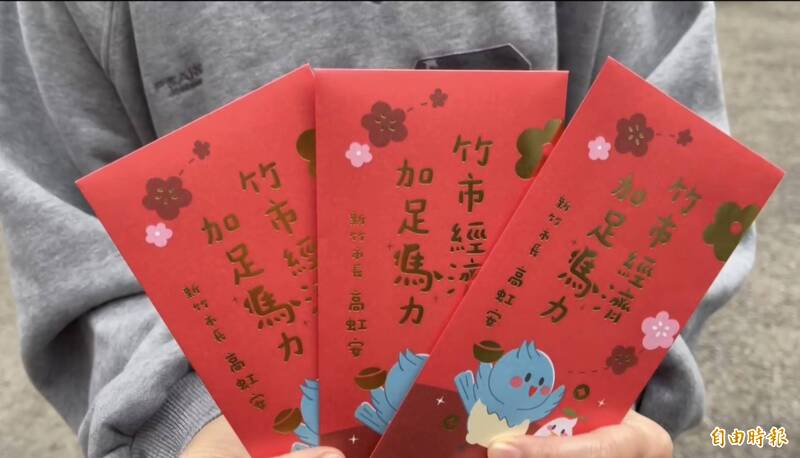 竹市經濟
加足馬力
新竹市長 高虹安
竹市經濟
加足馬力
新竹市長 高虹安
竹市經濟
加足馬力
新竹市長 高虹安
自由時報